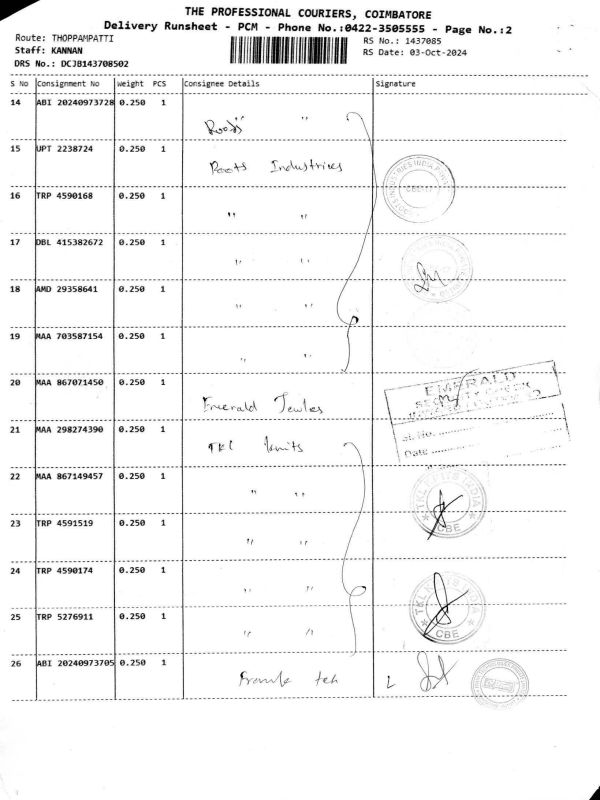 THE PROFESSIONAL COURIERS, COIMBATORE
Delivery Runsheet - PCM - Phone No.:0422-3505555 - Page No.:2
Route: THOPPAMPATTI
Staff: KANNAN
DRS No.: DCJB143708502
RS No.: 1437085
RS Date: 03-Oct-2024
S No Consignment No Weight PCS Consignee Details Signature
14 ABI 20240973728 0.250 1 Roots "
15 UPT 2238724 0.250 1 Roots Industries
16 TRP 4590168 0.250 1 " "
17 DBL 415382672 0.250 1 " "
18 AMD 29358641 0.250 1 " "
19 MAA 703587154 0.250 1 " "
20 MAA 867071450 0.250 1 Emerald Jewles
EMERALD
Sl.No.
Date
21 MAA 298274390 0.250 1 TKL knits
22 MAA 867149457 0.250 1 " "
TKL KNITS INDIA
CBE
23 TRP 4591519 0.250 1 " "
24 TRP 4590174 0.250 1 " "
TKL KNITS INDIA
CBE
25 TRP 5276911 0.250 1 " "
26 ABI 20240973705 0.250 1